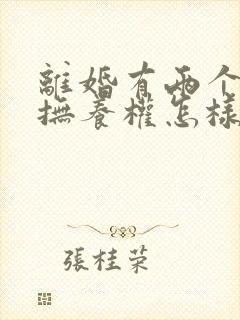 離婚有兩个
撫養權怎樣
張桂荣